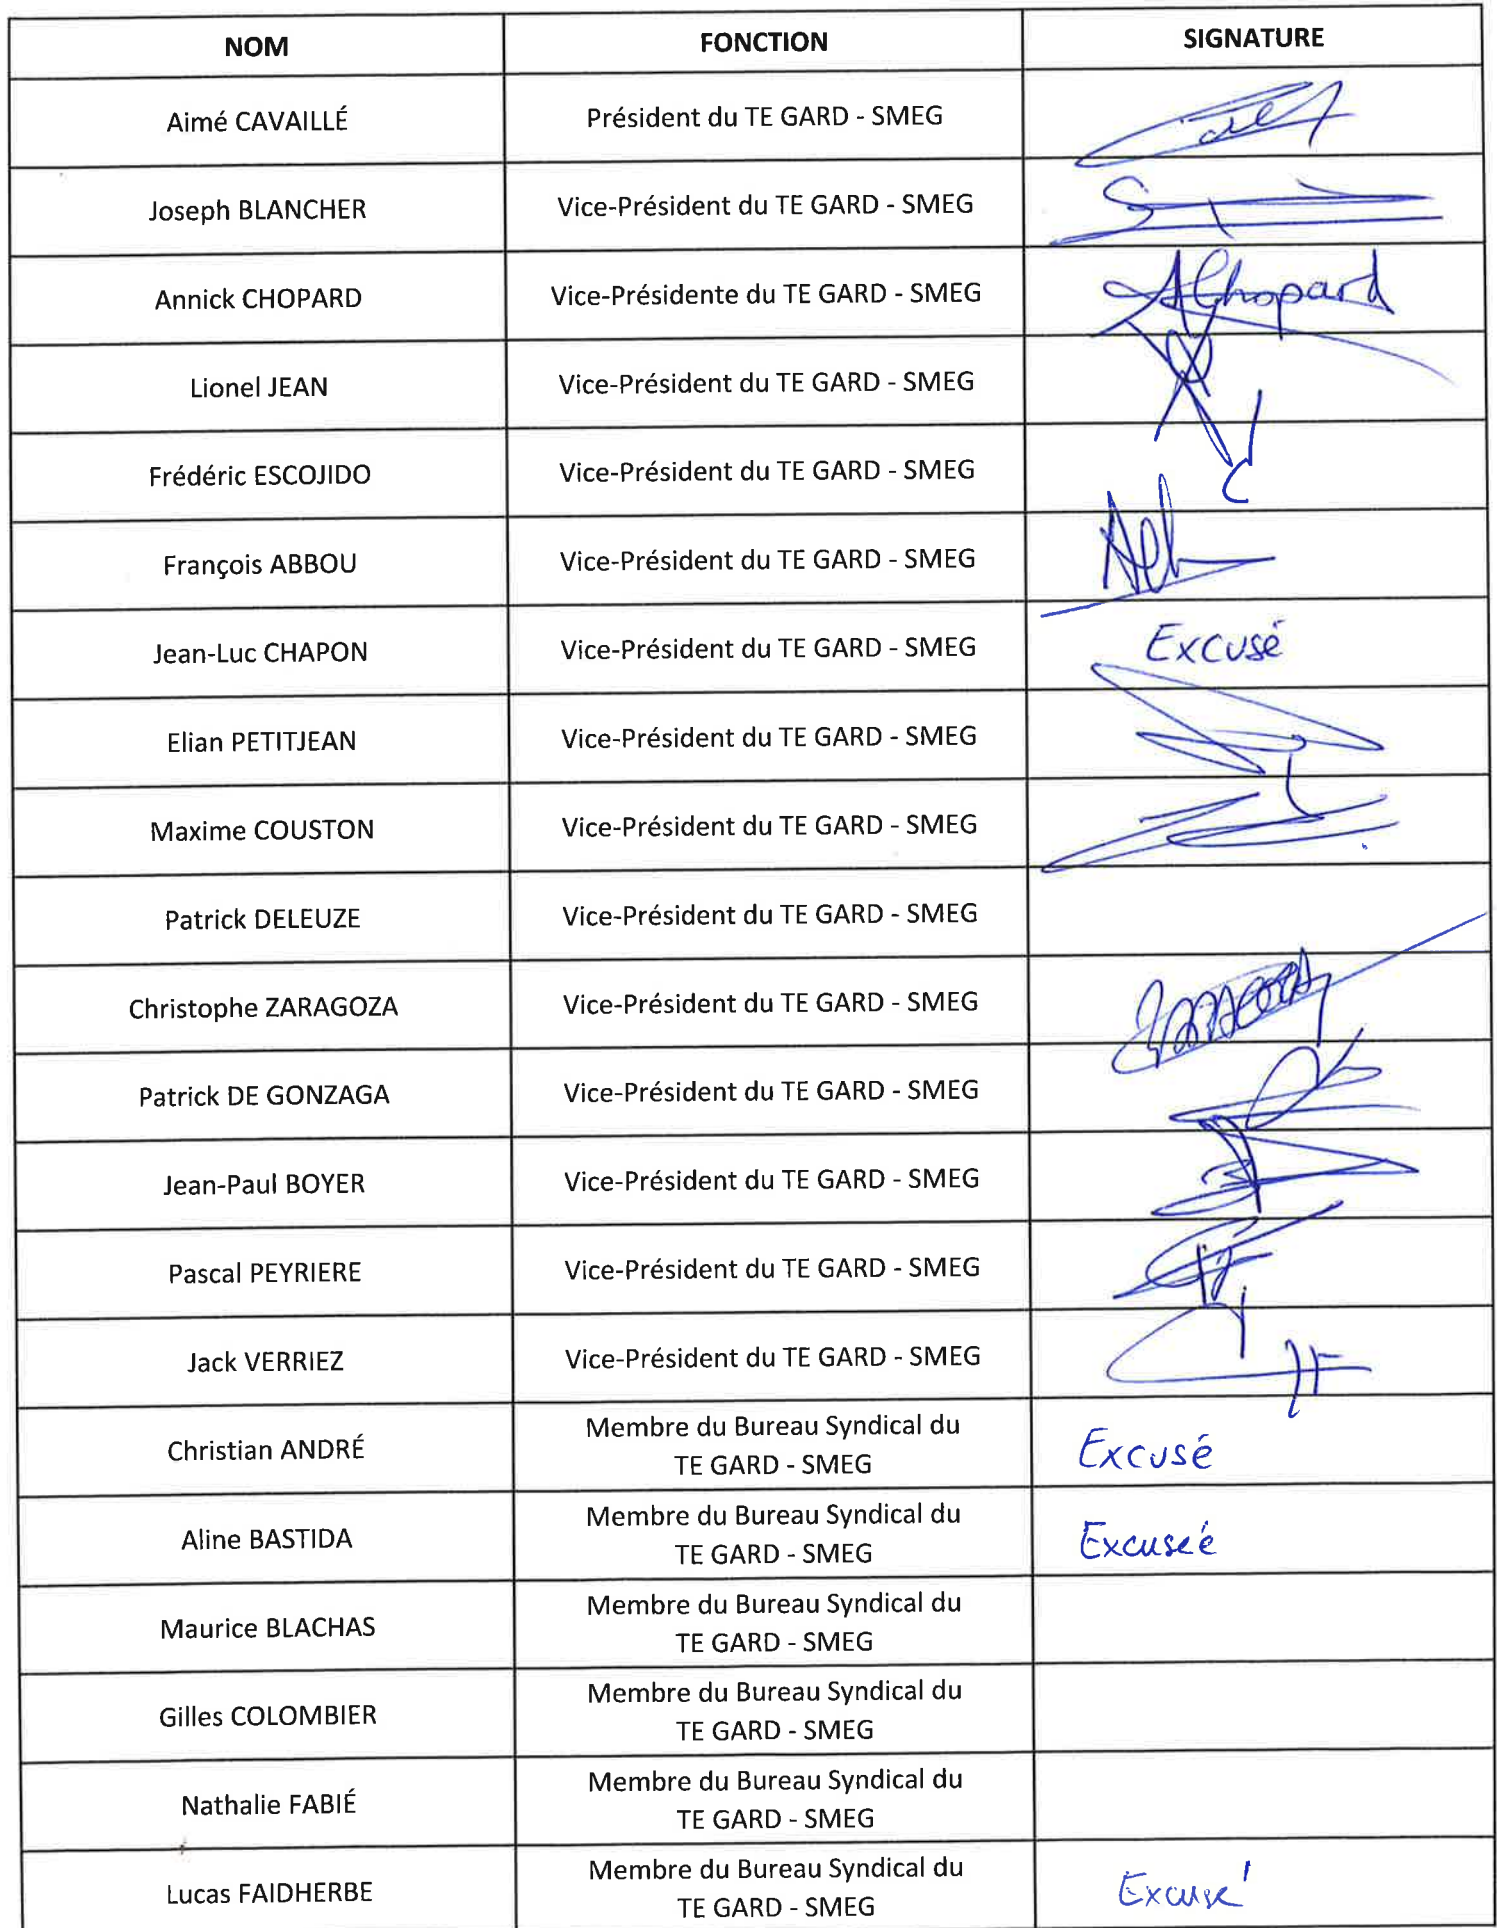 NOM FONCTION SIGNATURE
Aimé CAVAILLÉ Président du TE GARD - SMEG
Joseph BLANCHER Vice-Président du TE GARD - SMEG
Annick CHOPARD Vice-Présidente du TE GARD - SMEG AChopard
Lionel JEAN Vice-Président du TE GARD - SMEG
Frédéric ESCOJIDO Vice-Président du TE GARD - SMEG
François ABBOU Vice-Président du TE GARD - SMEG
Jean-Luc CHAPON Vice-Président du TE GARD - SMEG Excusé
Elian PETITJEAN Vice-Président du TE GARD - SMEG
Maxime COUSTON Vice-Président du TE GARD - SMEG
Patrick DELEUZE Vice-Président du TE GARD - SMEG
Christophe ZARAGOZA Vice-Président du TE GARD - SMEG
Patrick DE GONZAGA Vice-Président du TE GARD - SMEG
Jean-Paul BOYER Vice-Président du TE GARD - SMEG
Pascal PEYRIERE Vice-Président du TE GARD - SMEG
Jack VERRIEZ Vice-Président du TE GARD - SMEG
Christian ANDRÉ Membre du Bureau Syndical du
TE GARD - SMEG Excusé
Aline BASTIDA Membre du Bureau Syndical du
TE GARD - SMEG Excusée
Maurice BLACHAS Membre du Bureau Syndical du
TE GARD - SMEG
Gilles COLOMBIER Membre du Bureau Syndical du
TE GARD - SMEG
Nathalie FABIÉ Membre du Bureau Syndical du
TE GARD - SMEG
Lucas FAIDHERBE Membre du Bureau Syndical du
TE GARD - SMEG Excusé